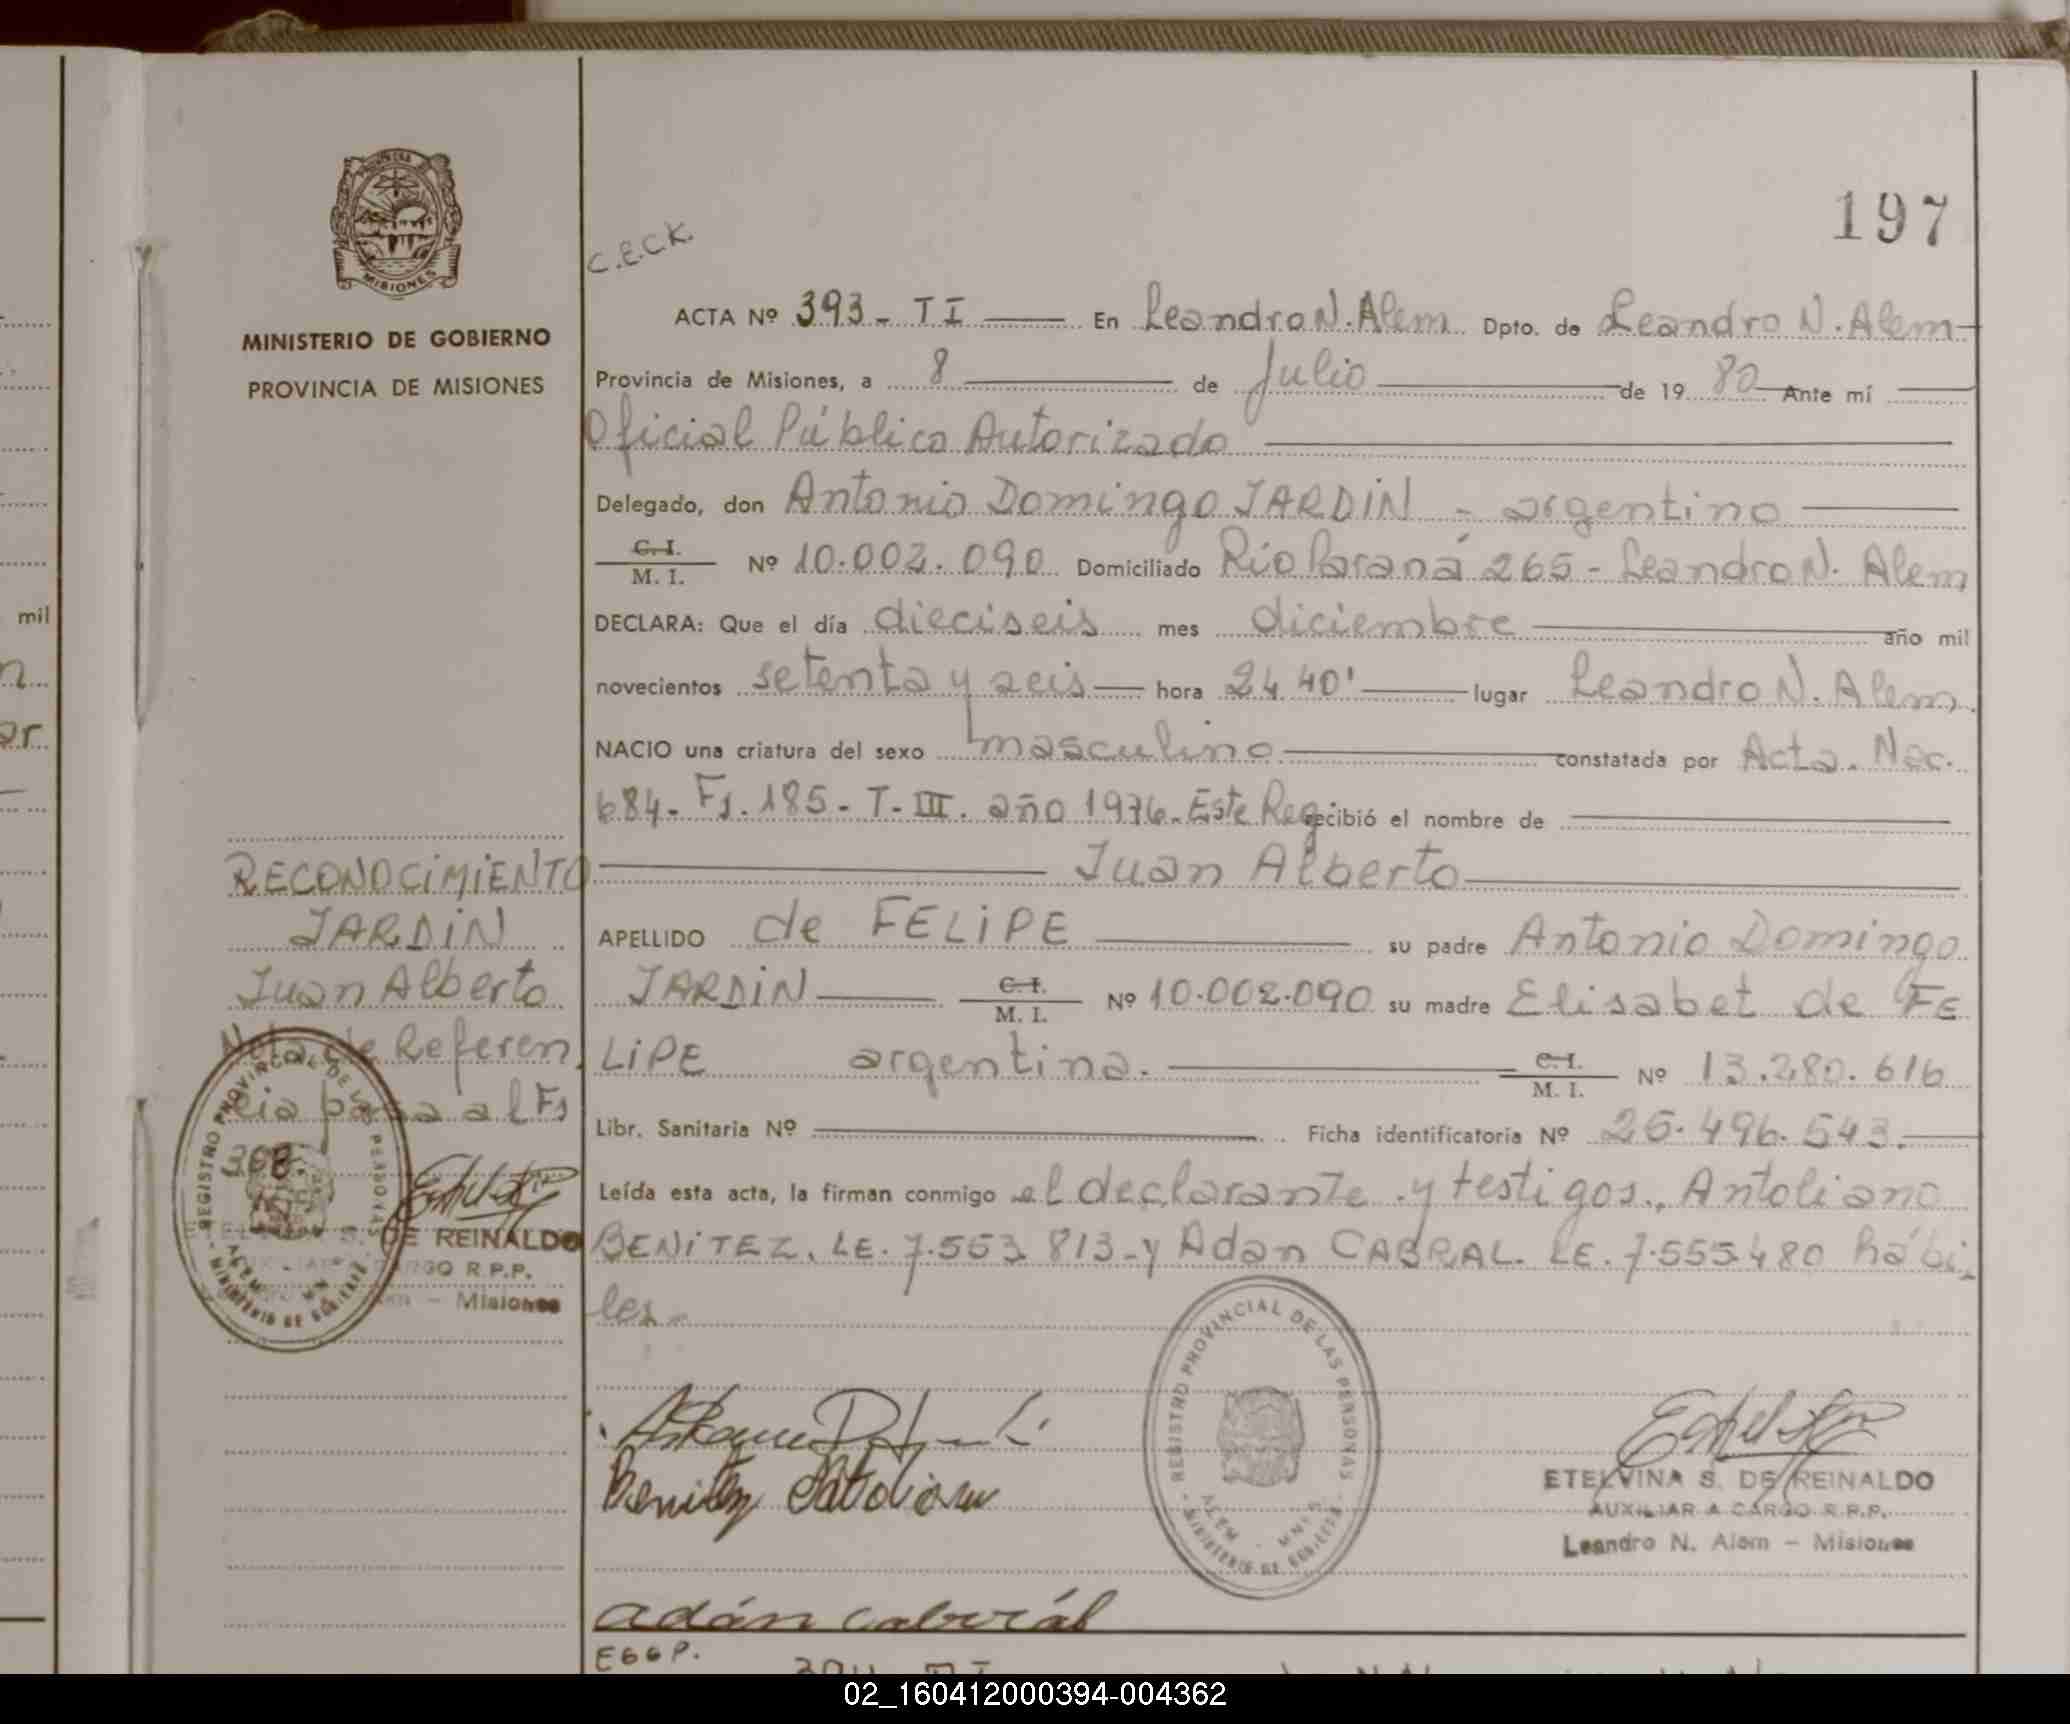 197
C.E.C.K.
MISIONES
MINISTERIO DE GOBIERNO
PROVINCIA DE MISIONES
ACTA Nº 393 - T I En Leandro N. Alem Dpto. de Leandro N. Alem
Provincia de Misiones, a 8 de Julio de 19 80 Ante mí
Oficial Público Autorizado
Delegado, don Antonio Domingo JARDIN - argentino
C. I. / M. I. Nº 10.002.090 Domiciliado Río Paraná 265 - Leandro N. Alem
DECLARA: Que el día dieciseis mes diciembre año mil
novecientos setenta y seis hora 24 40' lugar Leandro N. Alem.
NACIO una criatura del sexo masculino constatada por Acta. Nac.
684 - Fs. 185 - T - III. año 1976. Este Reg recibió el nombre de
Juan Alberto
APELLIDO de FELIPE su padre Antonio Domingo
JARDIN C. I. / M. I. Nº 10.002.090 su madre Elisabet de FE
LIPE argentina. C. I. / M. I. Nº 13.280.616
Libr. Sanitaria Nº Ficha identificatoria Nº 25.496.543.
Leída esta acta, la firman conmigo el declarante y testigos., Antoliano
BENITEZ. LE. 7.553 813 - y Adan CABRAL. LE. 7.555.480 hábi-
les -
RECONOCIMIENTO
JARDIN
Juan Alberto
Nota de Referen.
cia pasa al Fs
368
REGISTRO PROVINCIAL DE LAS PERSONAS
MINISTERIO DE GOBIERNO
DE REINALDO
CARGO R.P.P.
Misiones
Benitez Antoliano
adán cabrál
REGISTRO PROVINCIAL DE LAS PERSONAS
ALEM - MNES
MINISTERIO DE GOBIERNO
ETELVINA S. DE REINALDO
AUXILIAR A CARGO R.P.P.
Leandro N. Alem - Misiones
EGGP.
mil
02_160412000394-004362